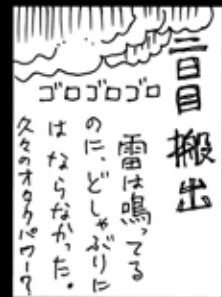 三日目搬出
ゴロゴロゴロ
雷は鳴ってる
のに、どしゃぶりに
はならなかった。
久々のオタクパワー?